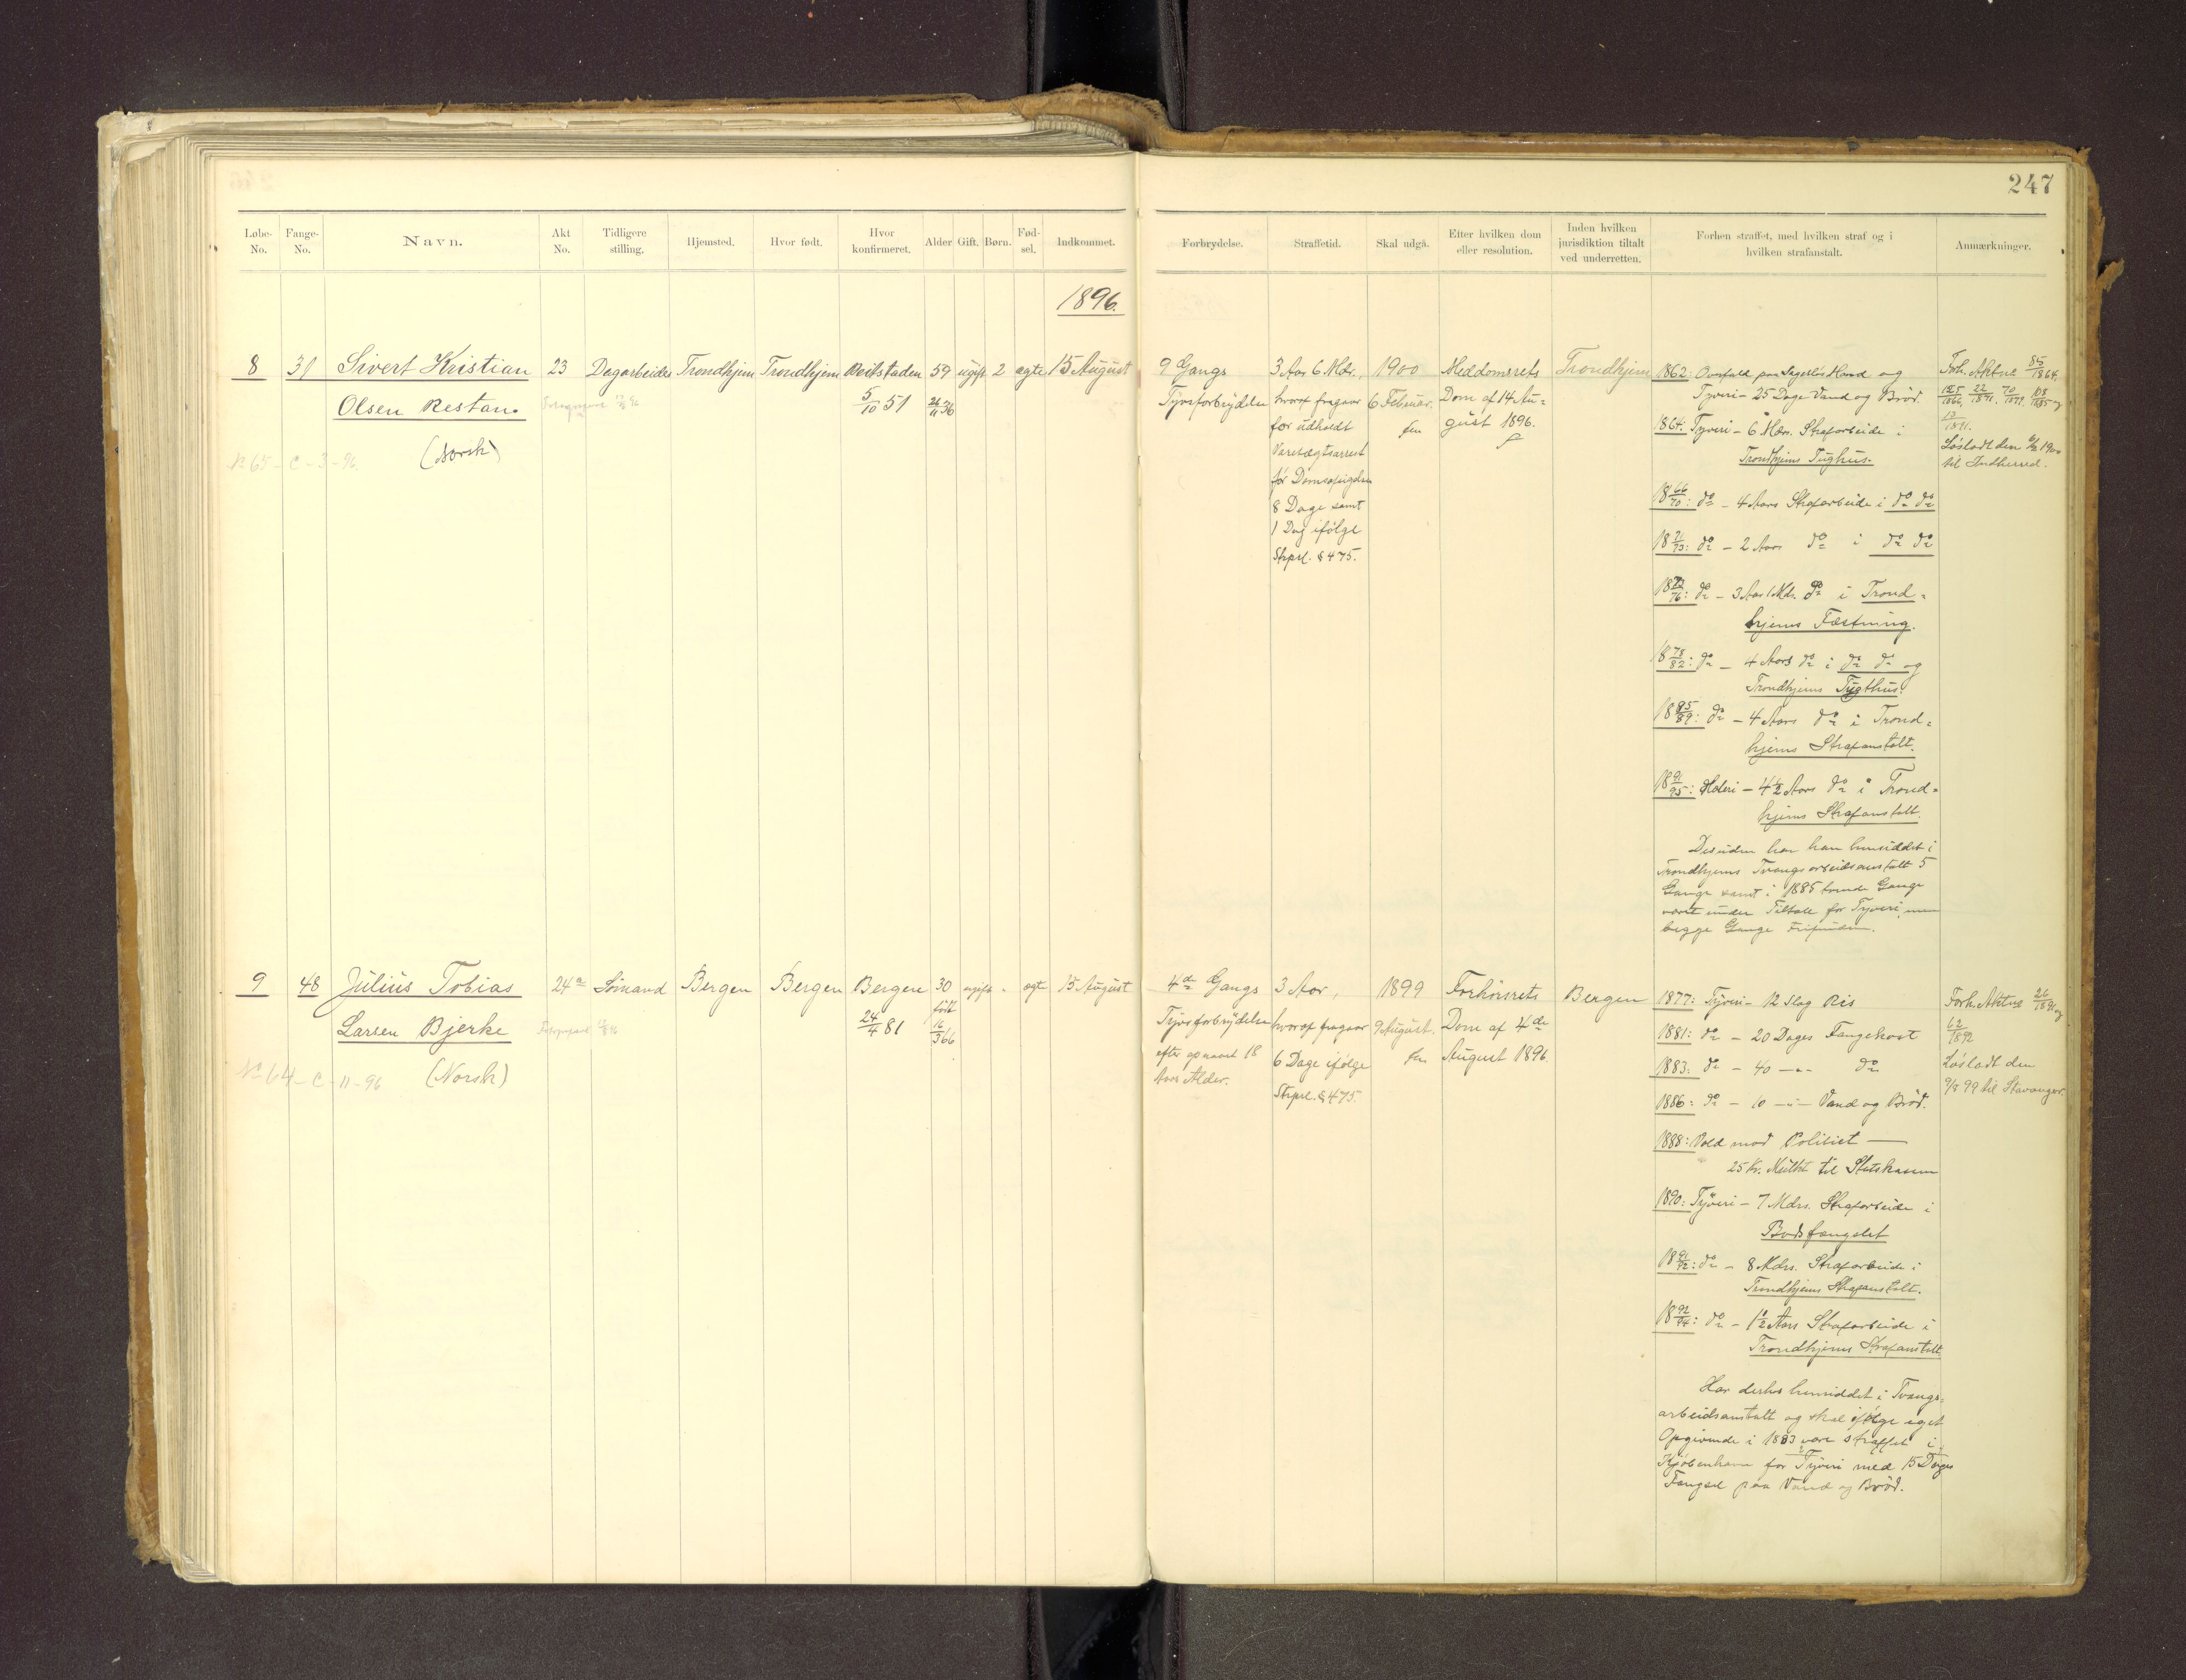 247
Løbe-No.
Fange-No.
Navn.
Akt No.
Tidligere stilling.
Hjemsted.
Hvor født.
Hvor konfirmeret.
Alder
Gift.
Børn.
Fød-sel.
Indkommet.
Forbrydelse.
Straffetid.
Skal udgå.
Efter hvilken dom eller resolution.
Inden hvilken jurisdiktion tiltalt ved underretten.
Forhen straffet, med hvilken straf og i hvilken strafanstalt.
Anmærkninger.
1896.
8
31
Sivert Kristian
Olsen Restan.
(Norsk)
No 65 - C - 3 - 96.
23
Dagarbeider
Trondhjem
Trondhjem
Beitstaden
5/10 51
59
26/11 36
ugift
2
ægte
15 August
9 Gangs
Tyvsforbrydelse
3 Aar 6 Mdr.,
hvoraf fragaar
for udholdt
Varetægtsarrest
før Domsafsigelsen
8 Dage samt
1 Dag ifølge
Strprl. § 475.
1900
6 Februar.
Meddomsrets
Dom af 14 Au=
gust 1896.
Trondhjem
1862: Overfald paa Sagesløs Mand og
Tyveri - 25 Dage Vand og Brød.
1864: Tyveri - 6 Mdrs. Strafarbeide i
Trondhjems Tugthus.
18 66/70: do - 4 Aars Strafarbeide i do do
18 71/73: do - 2 Aars do i do do
18 73/76: do - 3 Aar 1 Mdr. do i Trond=
hjems Fæstning.
18 78/82: do - 4 Aars do i do do og
Trondhjems Tugthus.
18 85/89: do - 4 Aars do i Trond=
hjems Strafanstalt.
18 91/95: Hæleri - 4 1/2 Aars do i Trond=
hjems Strafanstalt.
Desuden har han hensiddet i
Trondhjems Tvangsarbeidsanstalt 5
Gange samt i 1885 tvende Gange
været under Tiltale for Tyveri, men
begge Gange Frifunden.
Forh. Aktno 85/1864,
125/1866, 22/1871, 70/1878, 108/1885 og
13/1891.
Løsladt den 6/2 1900
til Indherred.
9
48
Julius Tobias
Larsen Bjerke
(Norsk)
No 64 - C - 11 - 96
24a
Sømand
Bergen
Bergen
Bergen
24/4 81
30
født
16/3 66
ugift
-
ægte
15 August
4de Gangs
Tyvsforbrydelse
efter opnaaet 18
Aars Alder.
3 Aar,
hvoraf fragaar
6 Dage ifølge
Strprl. § 475.
1899
9 August.
Forhørsrets
Dom af 4de
August 1896.
Bergen
1877: Tyveri - 12 Slag Ris
1881: do - 20 Dages Fangekost
1883: do - 40 -"- do
1886: do - 10 -"- Vand og Brød.
1888: Vold mod Politiet -
25 Kr. Mulkt til Statskassen
1890: Tyveri - 7 Mdrs. Strafarbeide i
Bodsfængslet
18 91/92: do - 8 Mdrs. Strafarbeide i
Trondhjems Strafanstalt.
18 92/94: do - 1 1/2 Aars Strafarbeide i
Trondhjems Strafanstalt
Har derhos hensiddet i Tvangs-
arbeidsanstalt og skal ifølge eget
Opgivende i 1883 være straffet i
Kjøbenhavn for Tyveri med 15 Dages
Fængsel paa Vand og Brød.
Forh. Aktno 26/1891 og
62/1892
Løsladt den
9/8 99 til Stavanger.